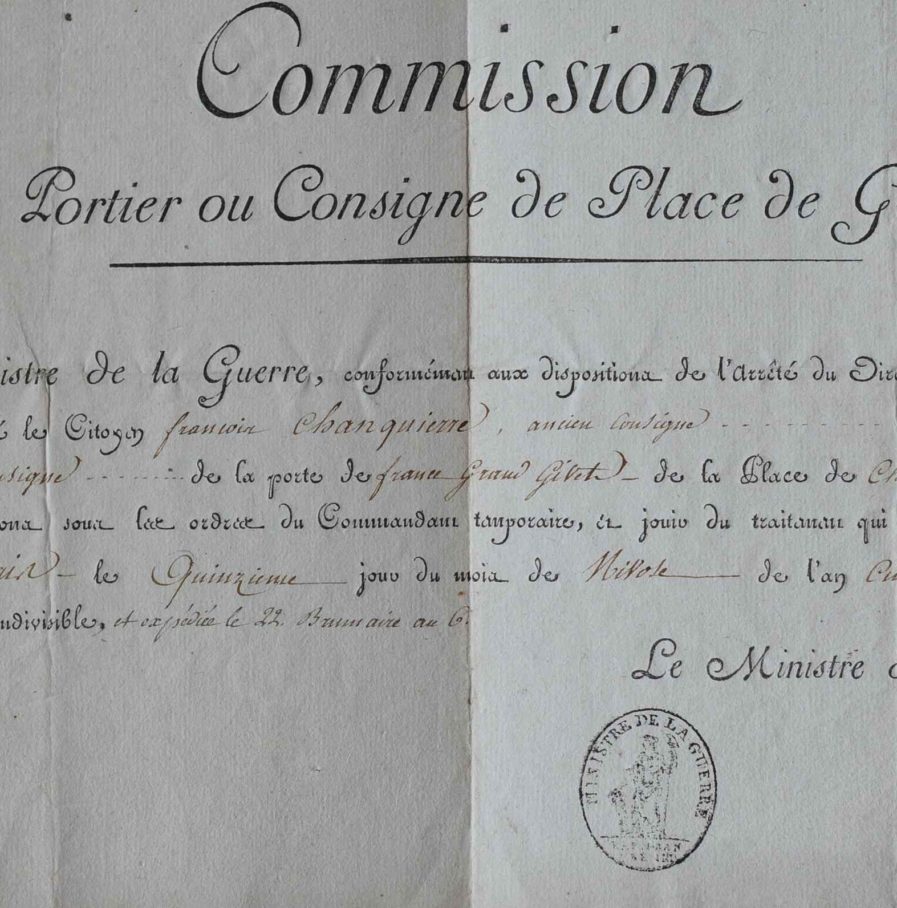 Commission
Portier ou Consigne de Place de G
istre de la Guerre, conformément aux dispositions de l'Arrêté du Dire
é le Citoyen francois Chanquierre, ancien Consigne
nsigne de la porte de france Grand Givet de la Place de Ch
ons sous les ordres du Commandant temporaire, et jouir du traitement qui
le Quinzieme jour du mois de Nivose de l'an Cin
ndivisible, et expédiée le 22 Brumaire an 6.
Le Ministre
MINISTRE DE LA GUERRE